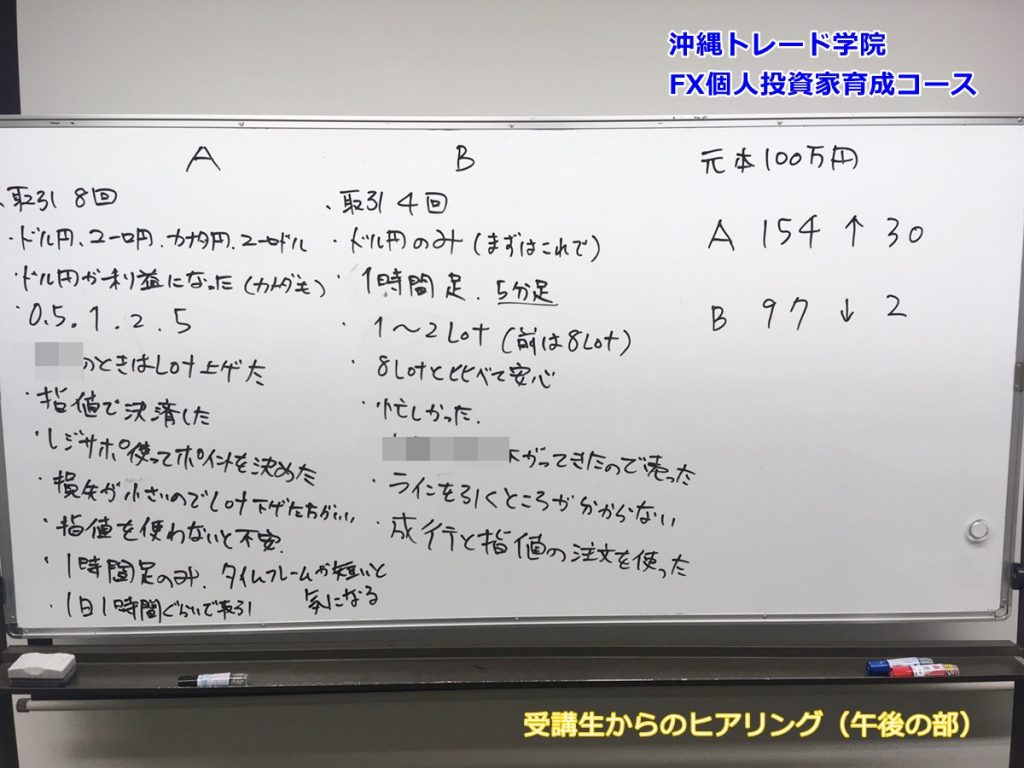 沖縄トレード学院
FX個人投資家育成コース
A
・取引 8回
・ドル円、ユーロ円、カナダ円、ユーロドル
・ドル円が利益になった (カナダも)
・0.5.1.2.5
のときはLot上げた
・指値で決済した
・レジサポ使ってポイントを決めた
・損失が小さいのでLot下げた方がいい
・指値を使わないと不安.
・1時間足のみ. タイムフレームが短いと
気になる
・1日1時間ぐらいで取引
B
・取引 4回
・ドル円のみ (まずはこれで)
・1時間足. 5分足
・1〜2Lot (前は8Lot)
・8Lotと比べて安心
・忙しかった.
下がってきたので売った
・ラインを引くところが分からない
・成行と指値の注文を使った
元本100万円
A 154 ↑ 30
B 97 ↓ 2
受講生からのヒアリング（午後の部）